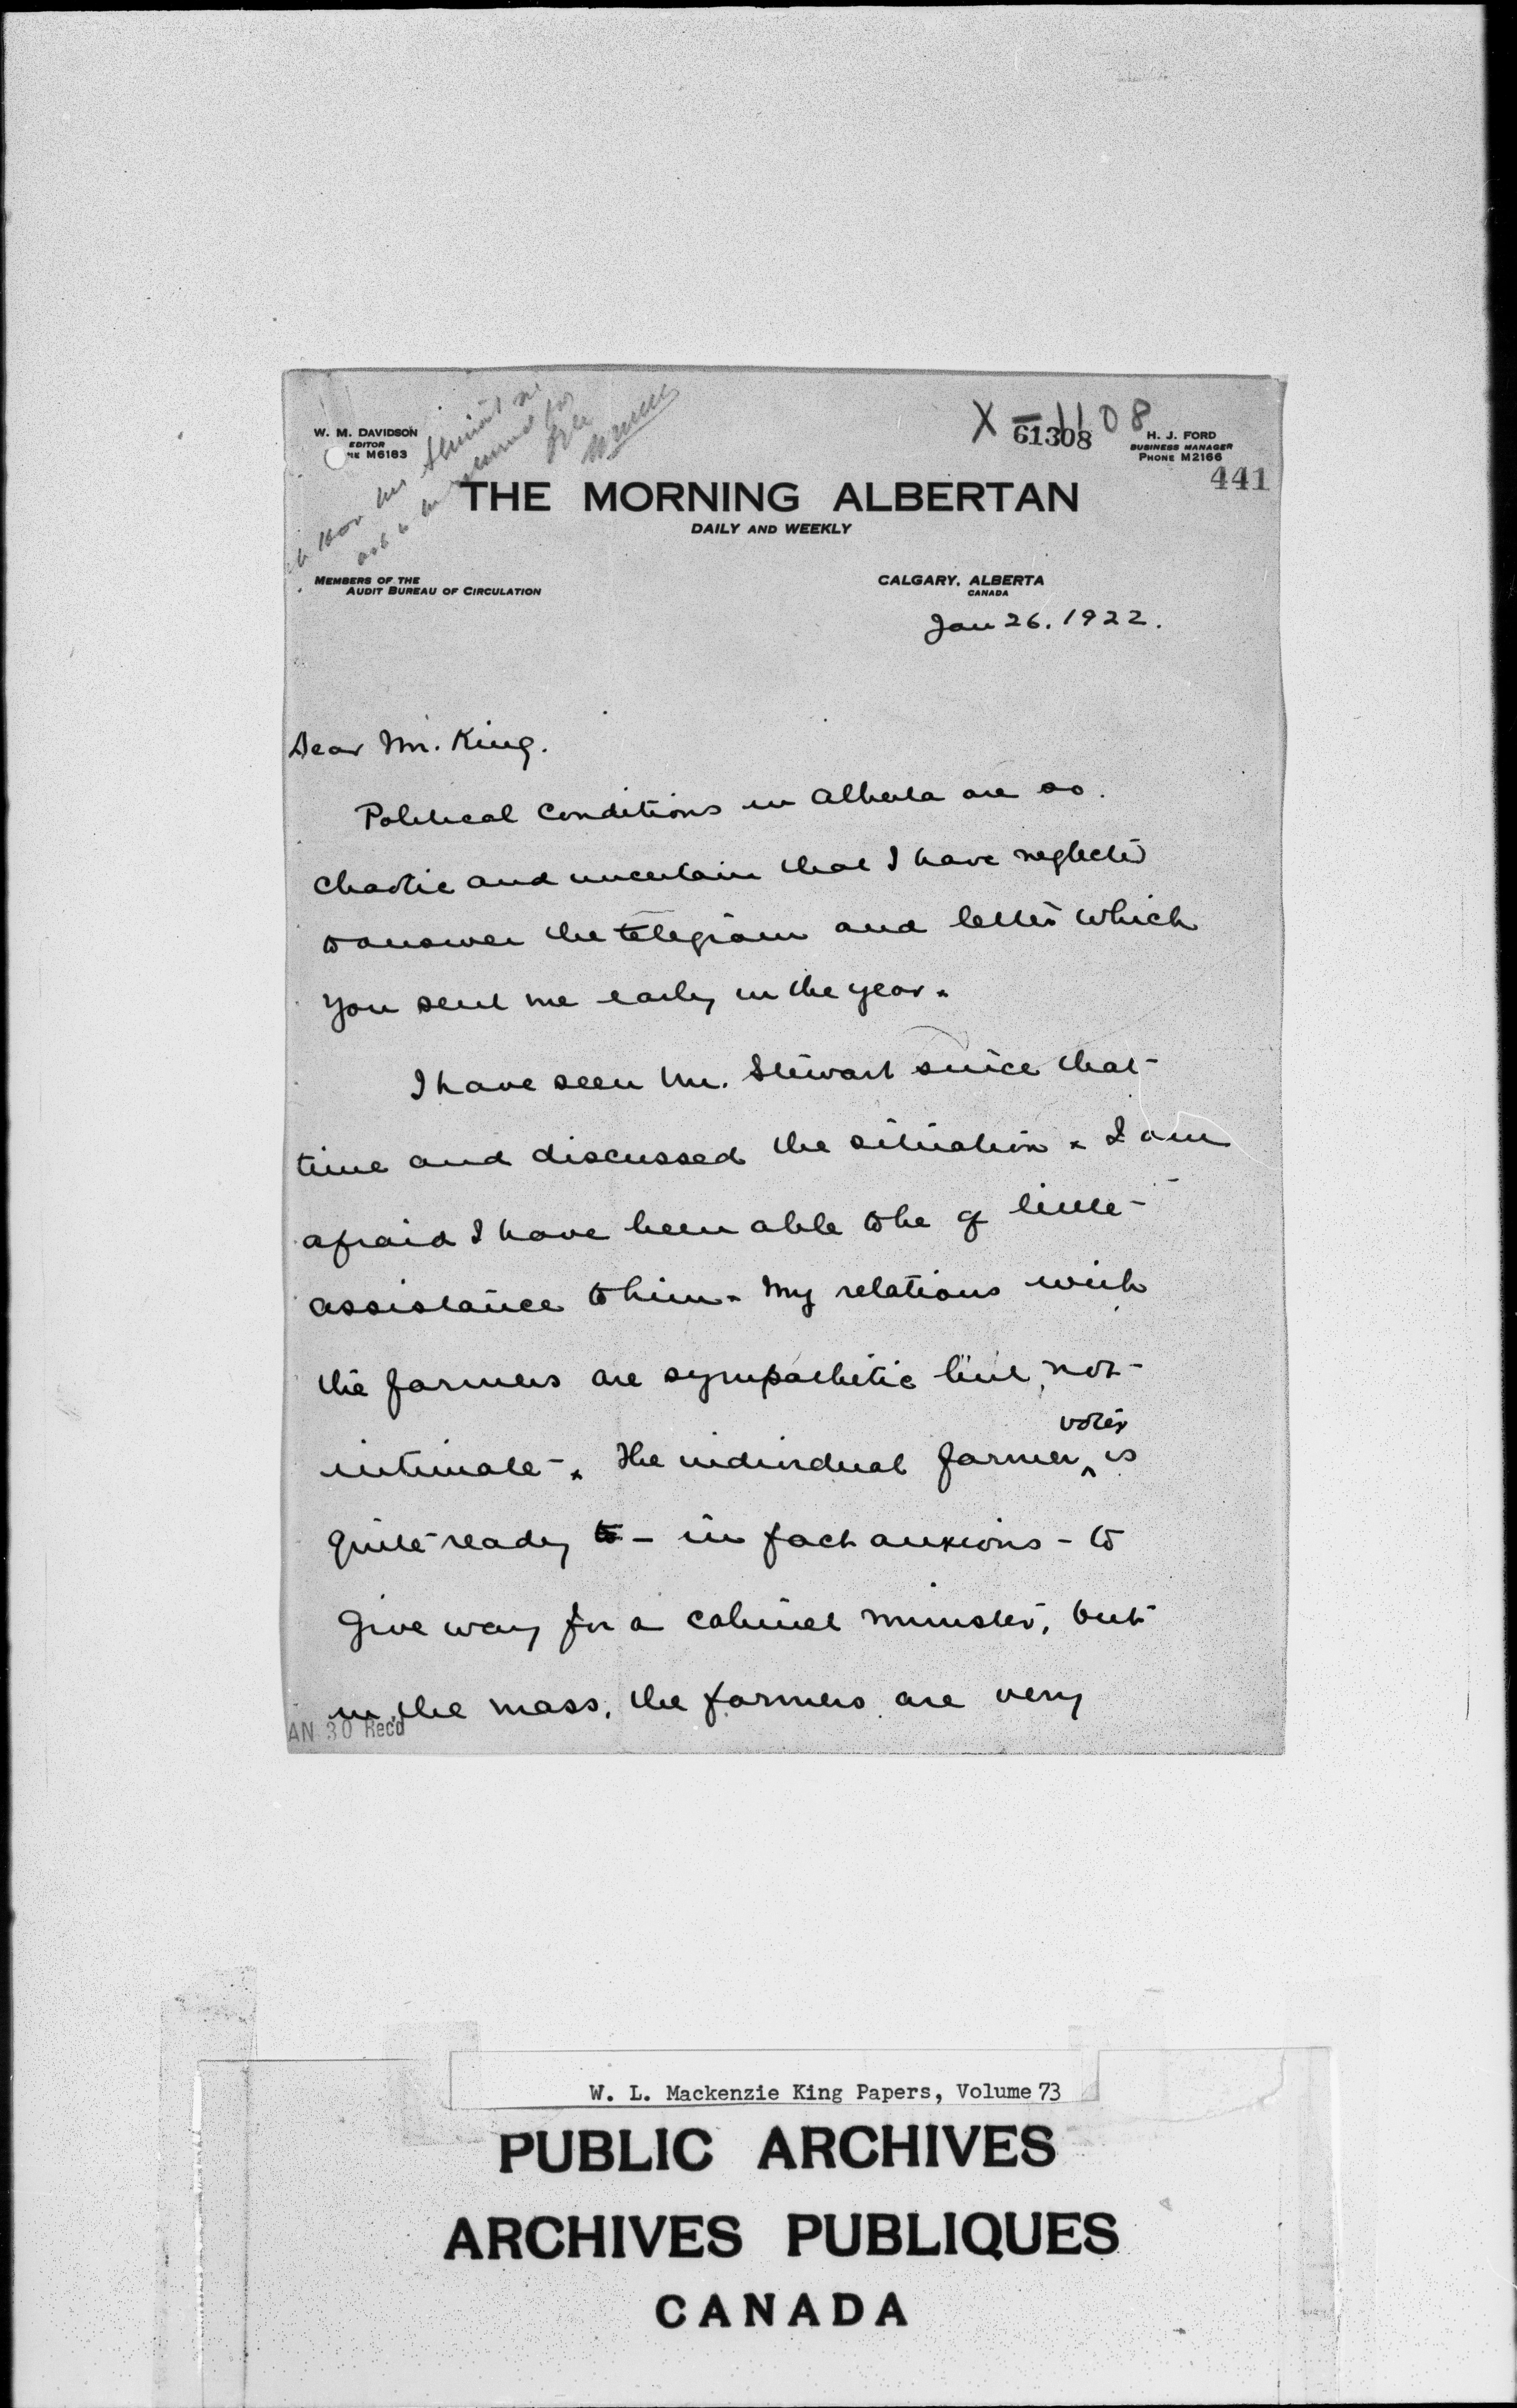 X 1108
61308
W. M. DAVIDSON
EDITOR
M6183
H. J. FORD
BUSINESS MANAGER
PHONE M2166
441
THE MORNING ALBERTAN
DAILY AND WEEKLY
MEMBERS OF THE
AUDIT BUREAU OF CIRCULATION
CALGARY, ALBERTA
CANADA
Jan 26. 1922.
Dear Mr. King.
Political conditions in Alberta are so
chaotic and uncertain that I have neglected
to answer the telegram and letter which
you sent me early in the year.
I have seen Mr. Stewart since that
time and discussed the situation. I am
afraid I have been able to be of little
assistance to him. My relations with
the farmers are sympathetic but not
voter
intimate. The individual farmer ^ is
quite ready to - in fact anxious - to
give way for a cabinet minister, but
in the mass, the farmers are very
AN 30 Recd
W. L. Mackenzie King Papers, Volume 73
PUBLIC ARCHIVES
ARCHIVES PUBLIQUES
CANADA